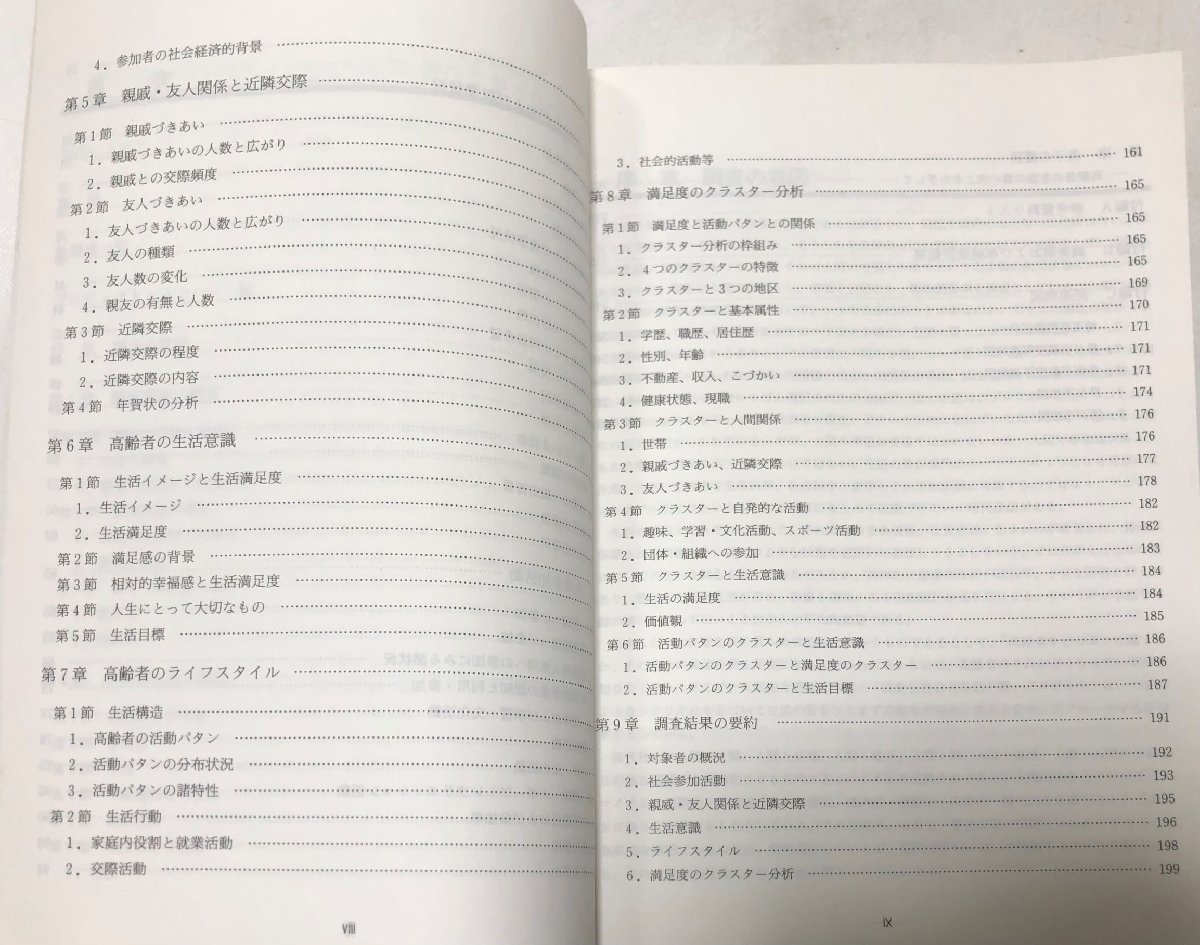 4．参加者の社会経済的背景
第5章　親戚・友人関係と近隣交際
第1節　親戚づきあい
1．親戚づきあいの人数と広がり
2．親戚との交際頻度
第2節　友人づきあい
1．友人づきあいの人数と広がり
2．友人の種類
3．友人数の変化
4．親友の有無と人数
第3節　近隣交際
1．近隣交際の程度
2．近隣交際の内容
第4節　年賀状の分析
第6章　高齢者の生活意識
第1節　生活イメージと生活満足度
1．生活イメージ
2．生活満足度
第2節　満足感の背景
第3節　相対的幸福感と生活満足度
第4節　人生にとって大切なもの
第5節　生活目標
第7章　高齢者のライフスタイル
第1節　生活構造
1．高齢者の活動パタン
2．活動パタンの分布状況
3．活動パタンの諸特性
第2節　生活行動
1．家庭内役割と就業活動
2．交際活動
viii
3．社会的活動等 161
第8章　満足度のクラスター分析 165
第1節　満足度と活動パタンとの関係 165
1．クラスター分析の枠組み 165
2．4つのクラスターの特徴 165
3．クラスターと3つの地区 169
第2節　クラスターと基本属性 170
1．学歴、職歴、居住歴 171
2．性別、年齢 171
3．不動産、収入、こづかい 171
4．健康状態、現職 174
第3節　クラスターと人間関係 176
1．世帯 176
2．親戚づきあい、近隣交際 177
3．友人づきあい 178
第4節　クラスターと自発的な活動 182
1．趣味、学習・文化活動、スポーツ活動 182
2．団体・組織への参加 183
第5節　クラスターと生活意識 184
1．生活の満足度 184
2．価値観 185
第6節　活動パタンのクラスターと生活意識 186
1．活動パタンのクラスターと満足度のクラスター 186
2．活動パタンのクラスターと生活目標 187
第9章　調査結果の要約 191
1．対象者の概況 192
2．社会参加活動 193
3．親戚・友人関係と近隣交際 195
4．生活意識 196
5．ライフスタイル 198
6．満足度のクラスター分析 199
ix